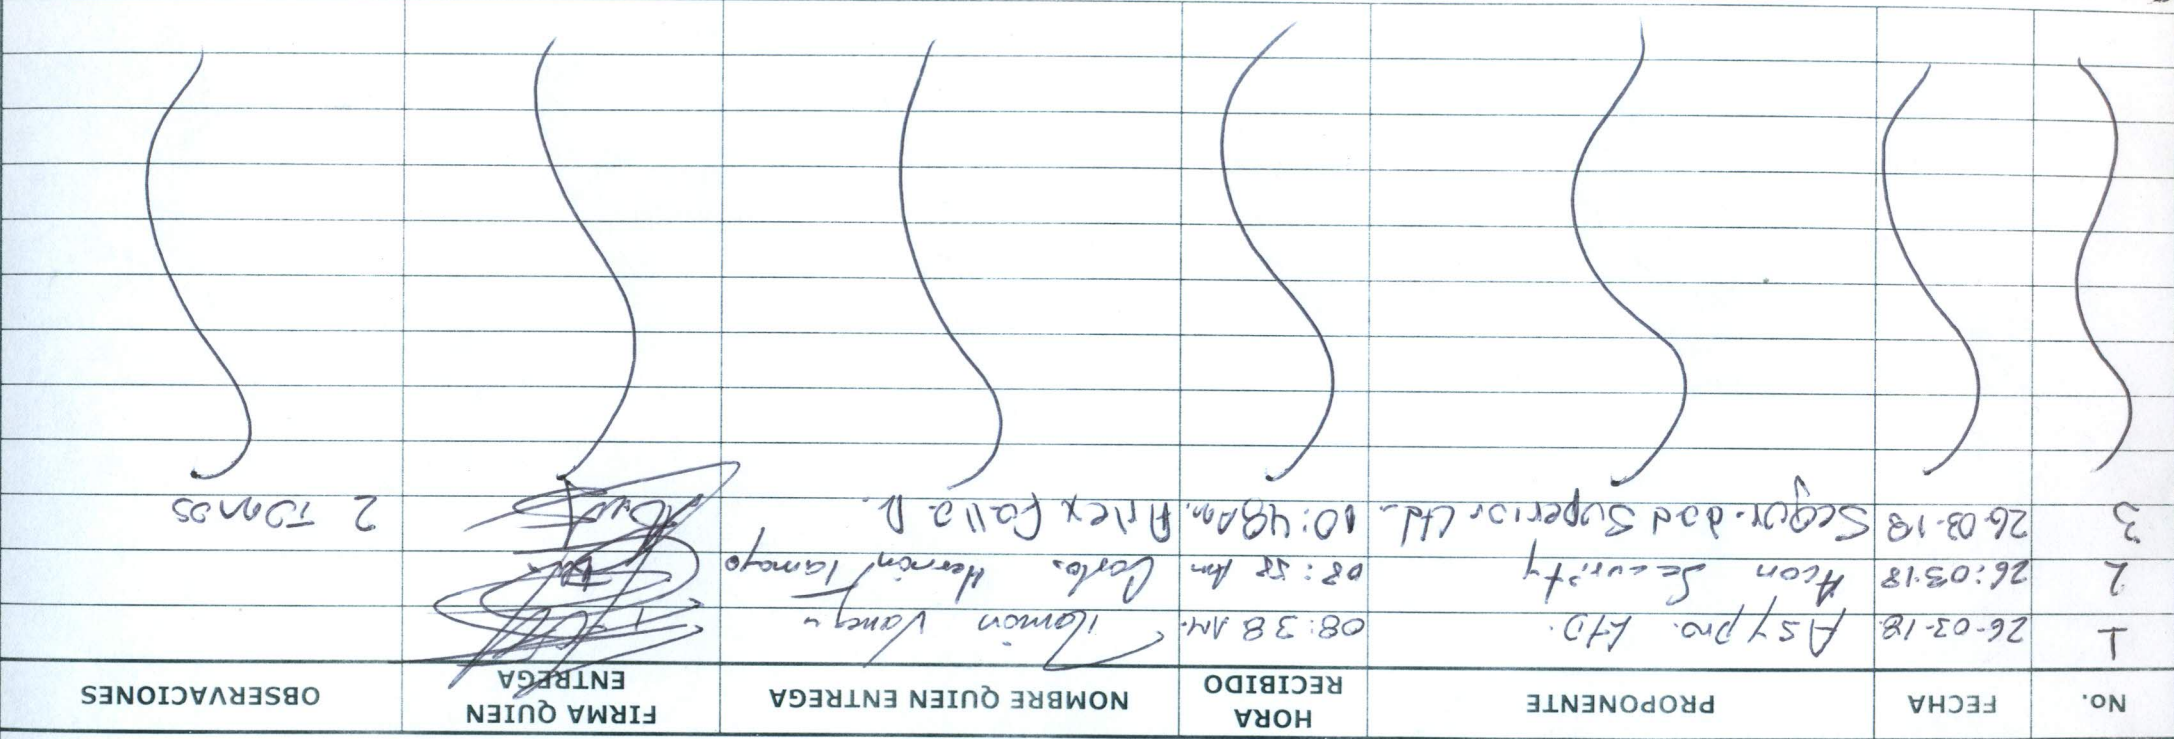 No. FECHA PROPONENTE HORA RECIBIDO NOMBRE QUIEN ENTREGA FIRMA QUIEN ENTREGA OBSERVACIONES
1 26-03-18 Asypro. LTD. 08:38 AM. Ramón Vanegas
2 26:03-18 Acon Security 08:58 Am Carlos Hernán Tamayo
3 26-03-18 Seguridad Superior Ltd. 10:48 Am. Arlex Falla R. 2 Tomos